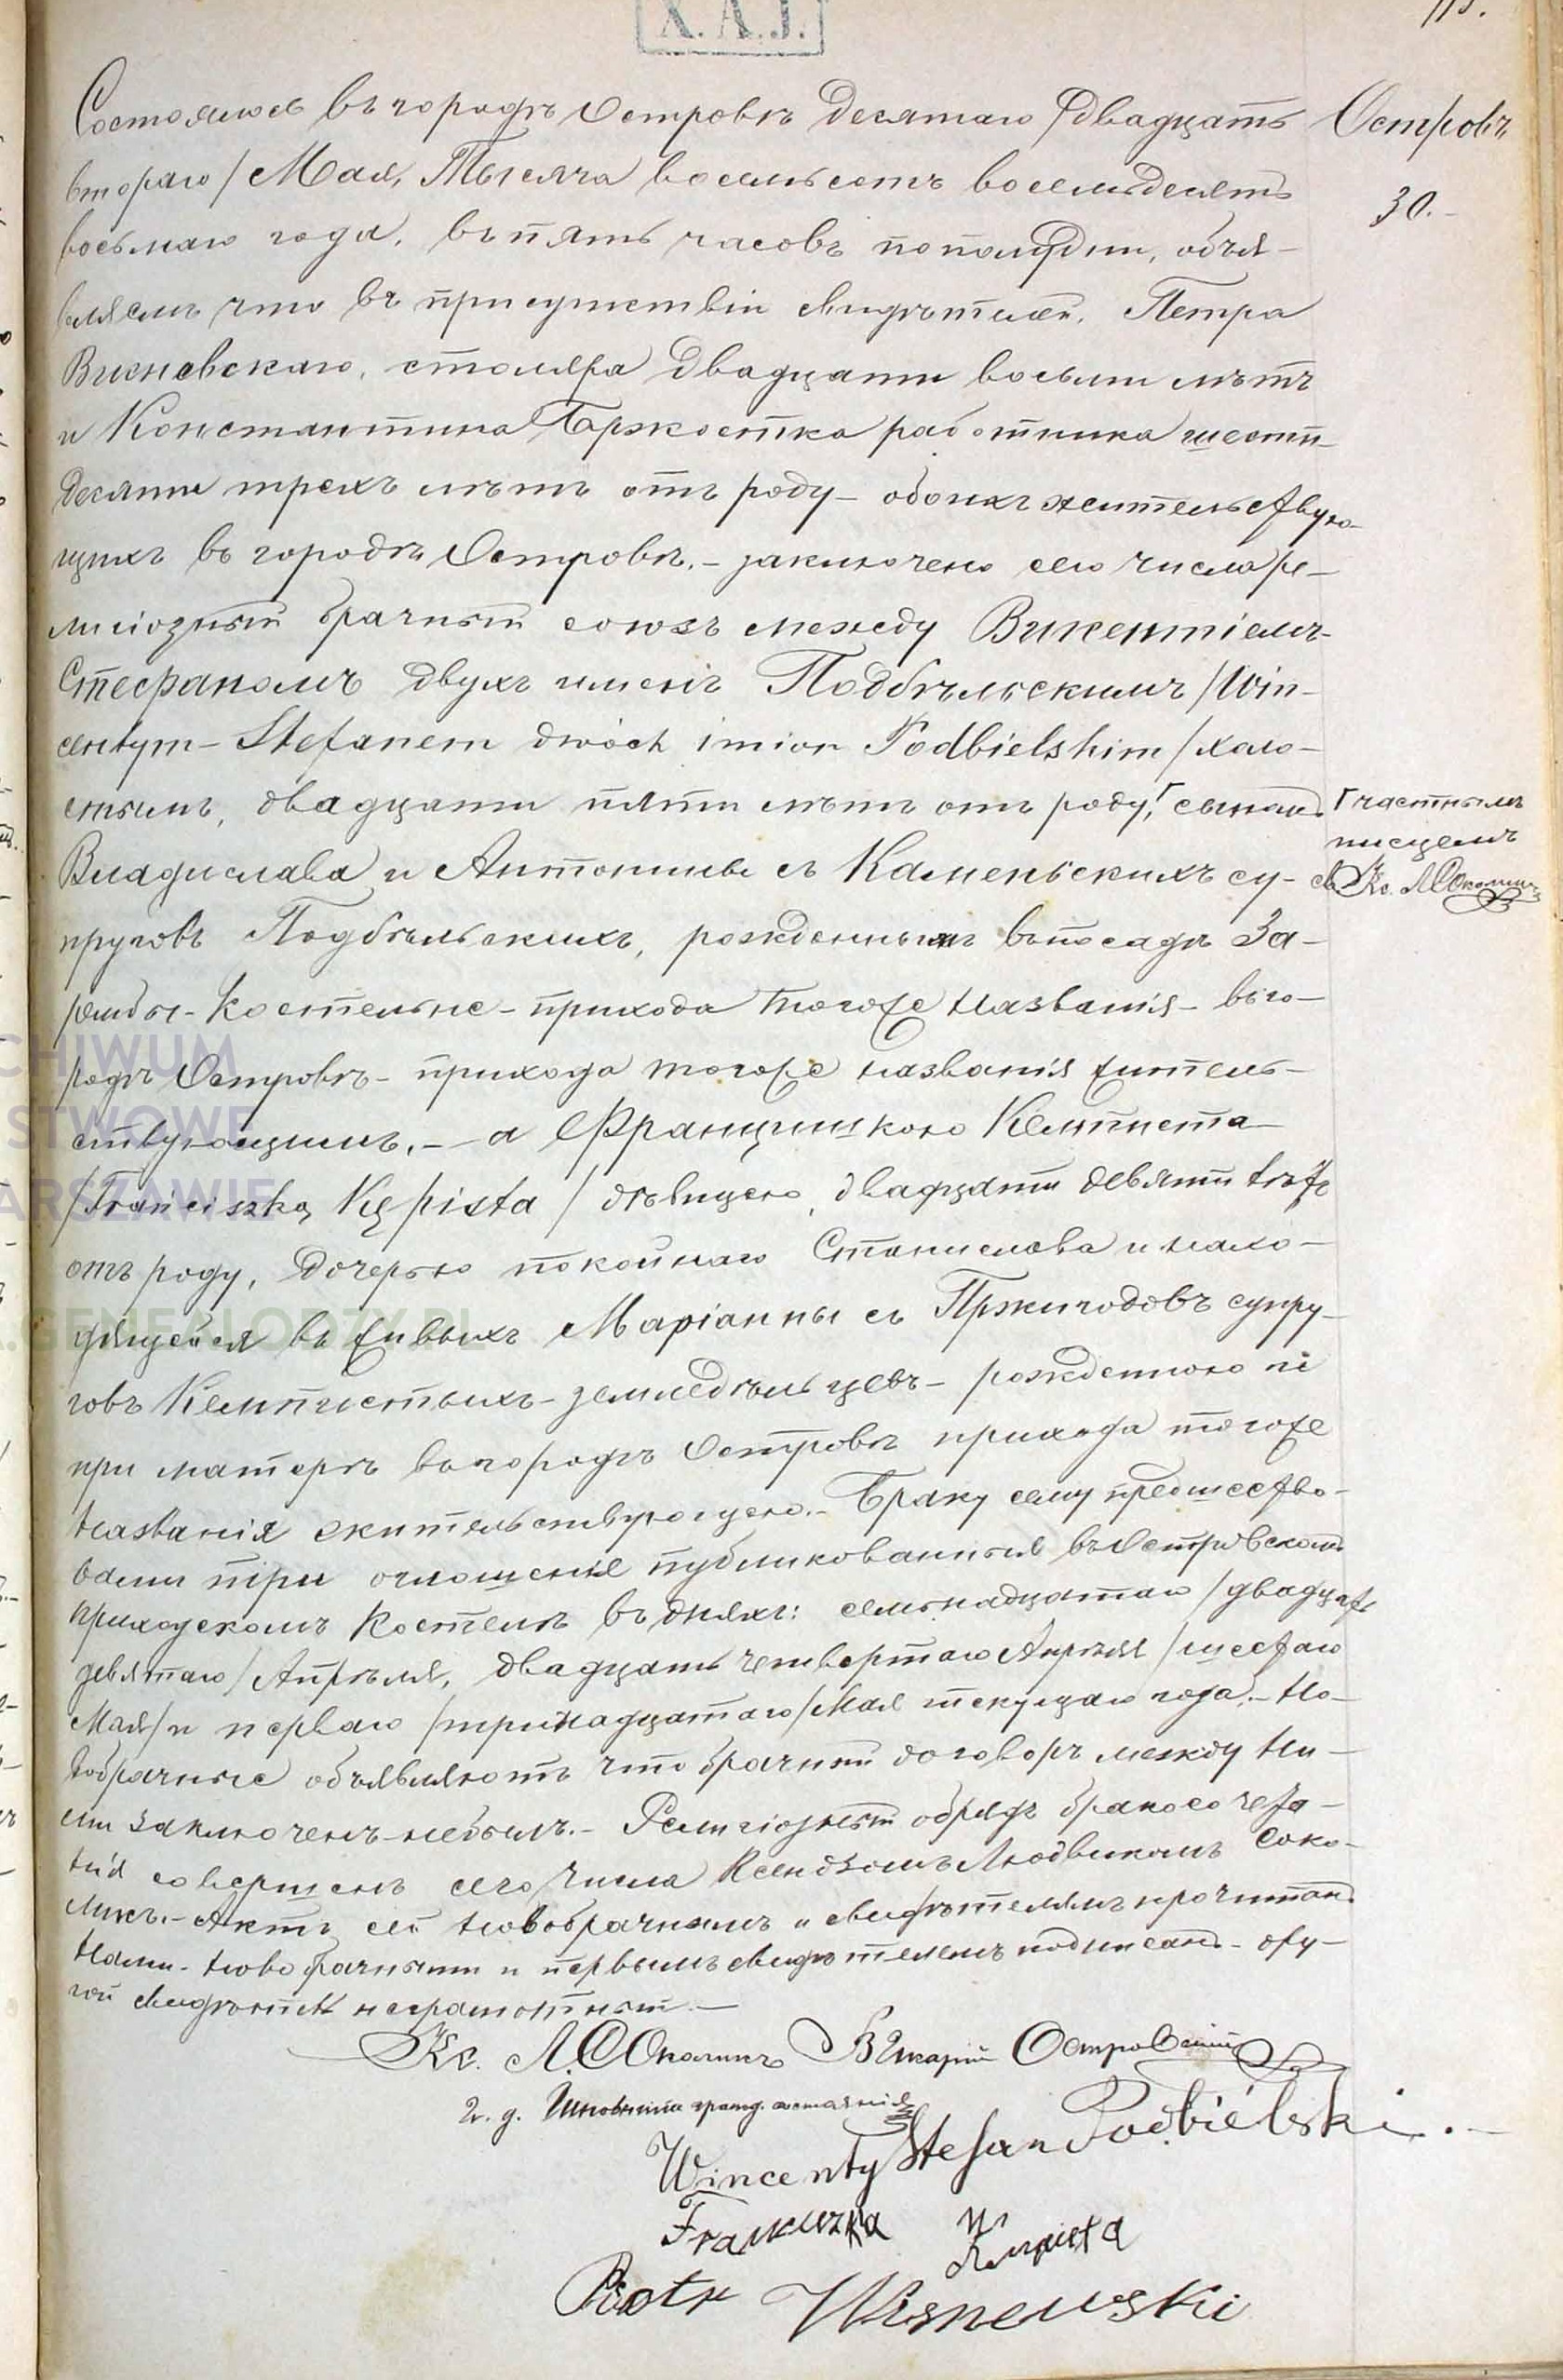 X.A.J.
115.
Состоялось въ городѣ Островѣ десятаго /двадцать
Островъ
втораго/ Мая, Тысяча восемьсотъ восемьдесятъ
30.-
восьмаго года, въ пять часовъ по полудни, объя-
вляемъ что въ присутствіи свидѣтелей, Петра
Висневскаго, столяра двадцати восьми лѣтъ
и Константина Бржостка работника шести-
десяти трехъ лѣтъ отъ роду - обоихъ жительству-
щихъ въ городѣ Островѣ.- заключено сего числа ре-
лигіозный брачный союзъ между Викентіемъ-
Стефаномъ двухъ именъ Подбѣльскимъ /Win-
centym - Stefanem dwóch imion Podbielskim/ холо-
стымъ, двадцати пяти лѣтъ отъ роду,Г сыномъ
Г частнымъ
писцемъ
Владислава и Антонины съ Каменьскихъ су-
Кс. Л. Соколикъ
пруговъ Подбѣльскихъ, рожденнымъ въ посадѣ За-
рембы - Костельне - прихода тогоже названія - въ го-
родѣ Островѣ - прихода тогоже названія житель-
ствующимъ. - а Францишкою Кемписта
/Franciszką Kępista/ дѣвицею, двадцати девяти лѣтъ
отъ роду, дочерью покойнаго Станислава и нахо-
дящейся въ живыхъ Маріанны съ Пржигодовъ супру-
говъ Кемпистыхъ - земледѣльцевъ - рожденною и
при матери въ городѣ Островѣ прихода тогоже
названія жительствующею.- Браку сему предшество-
вали три оглошенія публикованныя въ Островскомъ
приходскомъ Костелѣ въ дняхъ: семьнадцатаго /двадцать
девятаго/ Апрѣля, двадцать четвертаго Апрѣля /шестаго
Мая/ и перваго /тринадцатаго/ Мая текущаго года. - Но-
вобрачные объявляютъ что брачный договоръ между ни-
ми заключенъ небылъ.- Религіозный обрядъ бракосочета-
нія совершенъ сего числа Ксендзомъ Людвикомъ Соко-
ликъ. - Актъ сей новобрачнымъ и свидѣтелямъ прочитанъ
Нами - новобрачными и первымъ свидѣтелемъ подписанъ - дру-
гой свидѣтель неграмотный. -
Кс. Л. Соколикъ Викарій Островскій
и. д. Чиновника гражд. состоянія
Wincenty Stefan Podbielski.-
Franciszka Kempista
Piotr Wisnewski